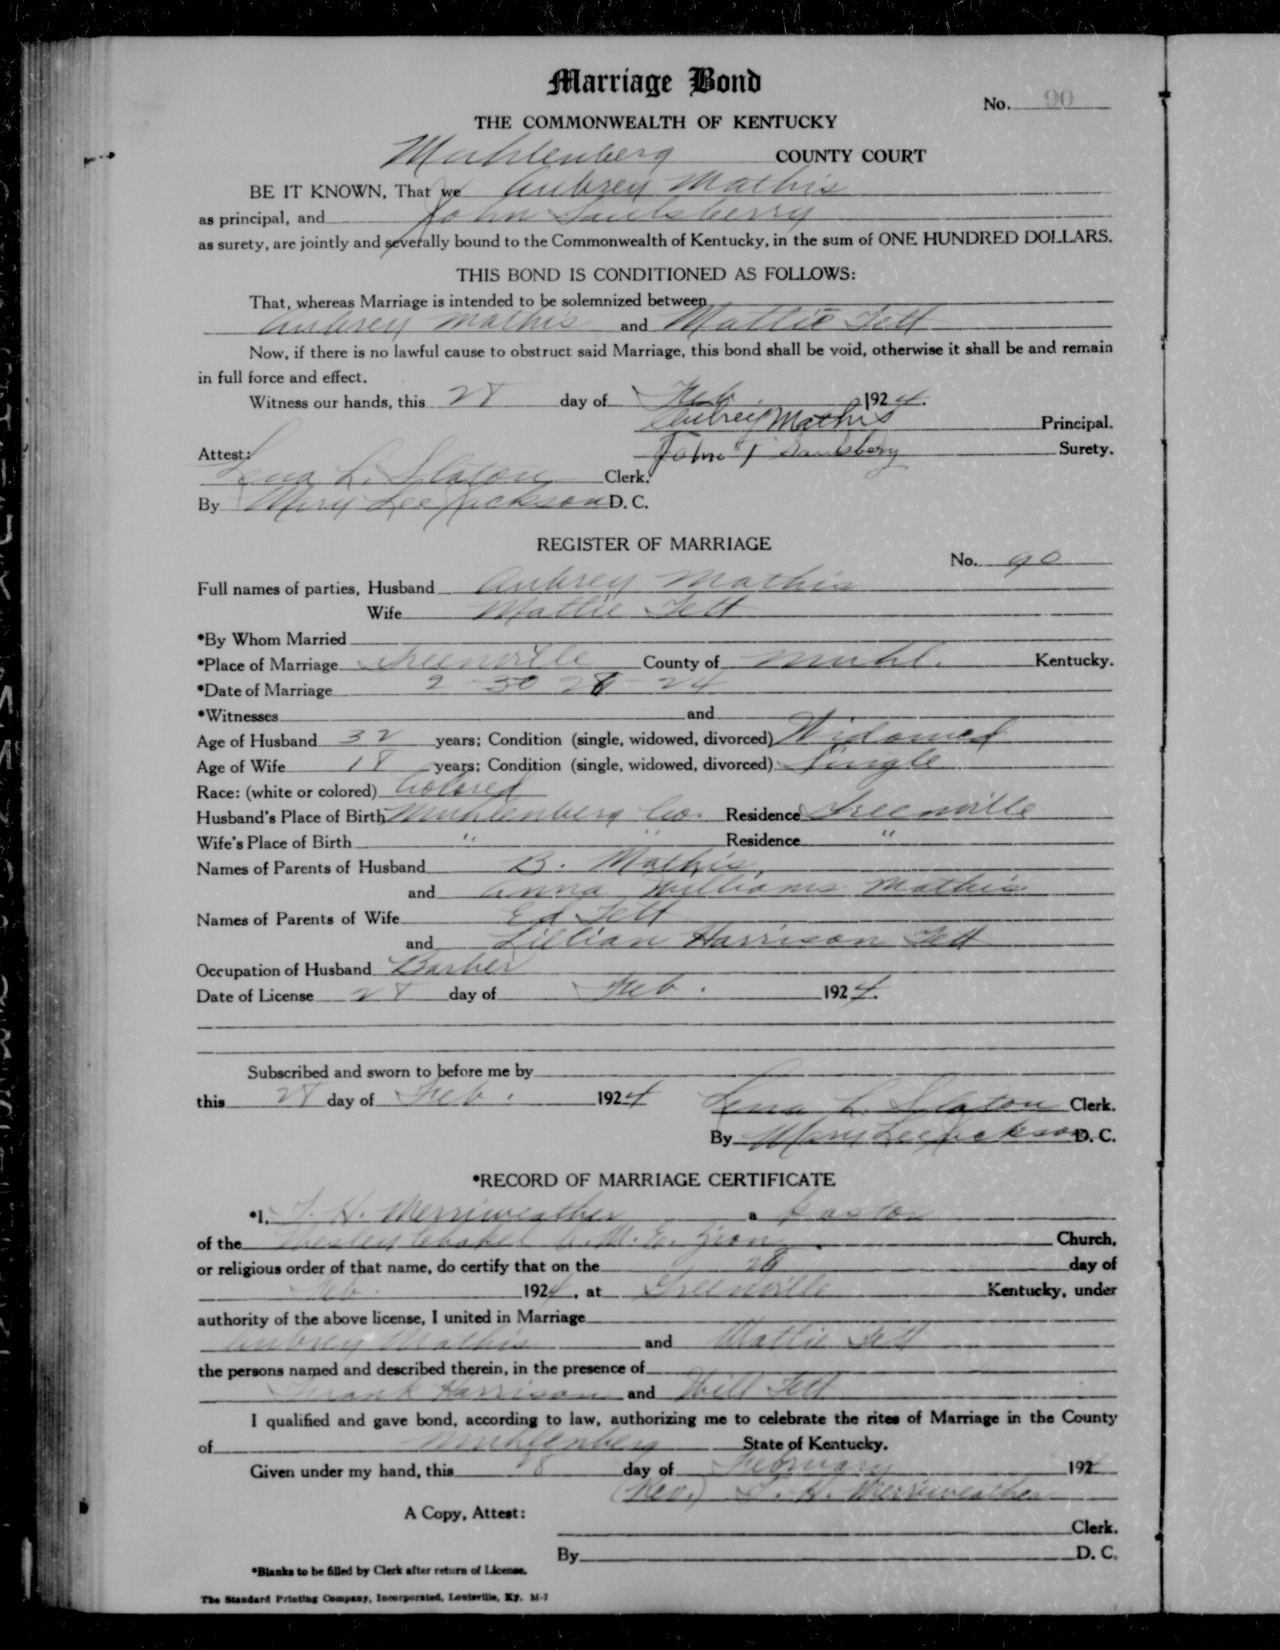 Marriage Bond
No. 90
THE COMMONWEALTH OF KENTUCKY
Muhlenberg COUNTY COURT
BE IT KNOWN, That we Aubrey Mathis
as principal, and John Saulsberry
as surety, are jointly and severally bound to the Commonwealth of Kentucky, in the sum of ONE HUNDRED DOLLARS.
THIS BOND IS CONDITIONED AS FOLLOWS:
That, whereas Marriage is intended to be solemnized between
Aubrey Mathis and Mattie Tett
Now, if there is no lawful cause to obstruct said Marriage, this bond shall be void, otherwise it shall be and remain
in full force and effect.
Witness our hands, this 28 day of Feb. 1924.
Aubrey Mathis Principal.
Attest: John T Saulsberry Surety.
Lena L. Slaton Clerk.
By Mary Lee Jackson D. C.
REGISTER OF MARRIAGE
No. 90
Full names of parties, Husband Aubrey Mathis
Wife Mattie Tett
*By Whom Married
*Place of Marriage Greenville County of Muhl. Kentucky.
*Date of Marriage 2 - 30 28 - 24
*Witnesses and
Age of Husband 32 years; Condition (single, widowed, divorced) Widowed
Age of Wife 18 years; Condition (single, widowed, divorced) Single
Race: (white or colored) Colored
Husband's Place of Birth Muhlenberg Co. Residence Greenville
Wife's Place of Birth " " Residence "
Names of Parents of Husband B. Mathis,
and Anna Williams Mathis
Names of Parents of Wife Ed Tett
and Lillian Harrison Tett
Occupation of Husband Barber
Date of License 28 day of Feb. 1924.
Subscribed and sworn to before me by
this 28 day of Feb. 1924 Lena L. Slaton Clerk.
By Mary Lee Jackson D. C.
*RECORD OF MARRIAGE CERTIFICATE
*I, T. H. Merriweather a Pastor
of the Wesley Chapel A. M. E. Zion Church,
or religious order of that name, do certify that on the 28 day of
Feb. 1924, at Greenville Kentucky, under
authority of the above license, I united in Marriage
Aubrey Mathis and Mattie Tett
the persons named and described therein, in the presence of
Frank Harrison and Will Tett
I qualified and gave bond, according to law, authorizing me to celebrate the rites of Marriage in the County
of Muhlenberg State of Kentucky.
Given under my hand, this 28 day of February 1924
(Rev.) T. H. Merriweather
A Copy, Attest:
Clerk.
By D. C.
*Blanks to be filled by Clerk after return of License.
The Standard Printing Company, Incorporated, Louisville, Ky. M-7